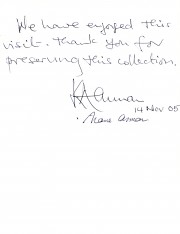 We have enjoyed this
visit. Thank you for
preserving this collection.
14 Nov 05